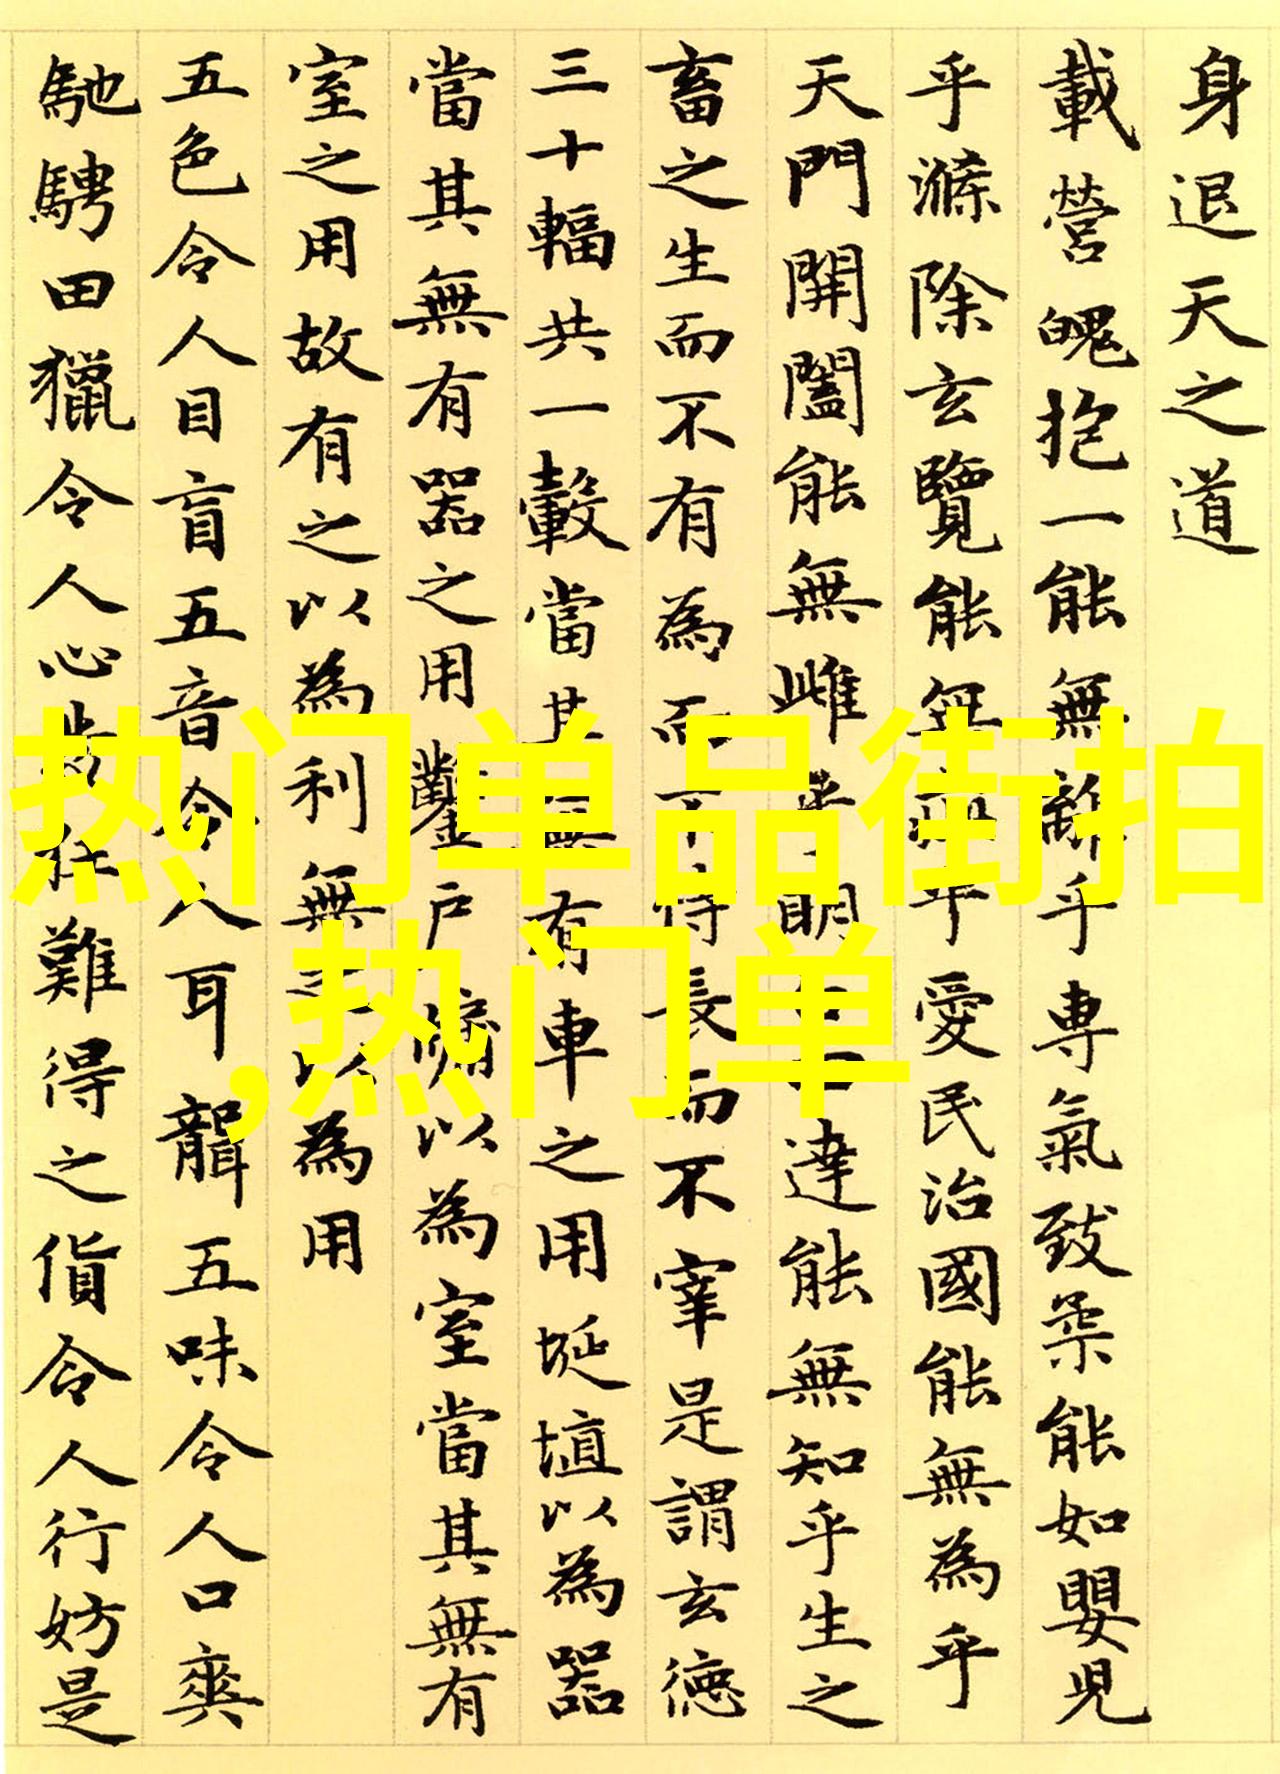 身退天之道
載營魄抱一能無離乎専氣致柔能如嬰児
乎滌除玄覽能無疵乎愛民治國能無為乎
天門開闔能無雌乎明白四達能無知乎生之
畜之生而不有為而不恃長而不宰是謂玄徳
三十輻共一轂當其無有車之用埏埴以為器
當其無有器之用鑿戸牖以為室當其無有
室之用故有之以為利無之以為用
五色令人目盲五音令人耳聾五味令人口爽
馳騁田獵令人心發狂難得之貨令人行妨是
热门单品街拍
,热门单